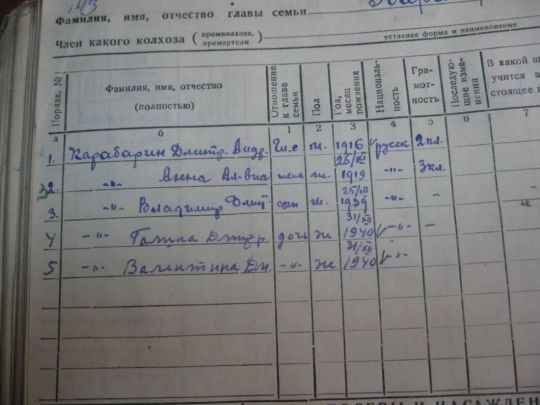 143
Фамилия, имя, отчество главы семьи
Член какого колхоза (промколхоза, промартели)
уставная форма и наименование
Порядк. № Фамилия, имя, отчество (полностью) Отношение к главе семьи Пол Год, месяц рождения Националь-ность Гра-мот-ность Последую-щие изме-нения В какой
учится
стоящее
а б 1 2 3 4 5 6 7
1. Карабарин Дмитр. Андр. м. 1916 русск 2 кл.
2. -"- Анна жена ж. 1919 -"- 3 кл.
3. -"- Владимир Дмит сын м. 25/ 1939 -"- -
4 -"- Галина Дмитр. дочь ж 31/XII 1940 -"- -
5 -"- Валентина Дм. -"- ж 31/XII 1940 -"-